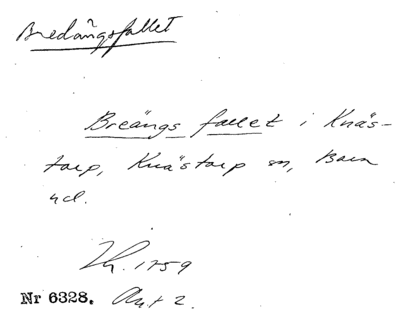 Bredängsfallet
Breängs fallet i Knäs-
torp, Knästorp sn, Bara
hd.
1759
Nr 6328. Akt 2.